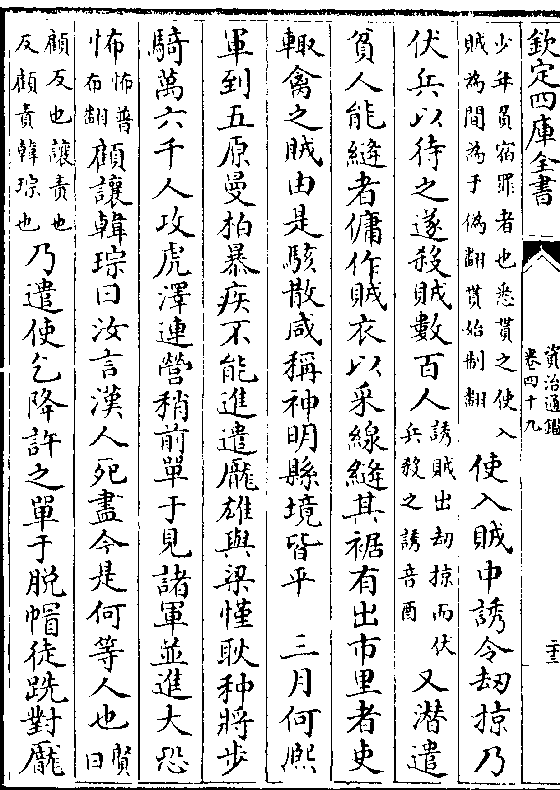 欽定四庫全書 資治通鑑 卷四十九
少年負宿罪者也悉貰之使入賊為間為于偽翻貰始制翻使入賊中誘令刼掠乃
伏兵以待之遂殺賊數百人誘賊出刼掠而伏兵殺之誘音酉又潛遣
貧人能縫者傭作賊衣以采線縫其裾有出市里者吏
輙禽之賊由是駭散咸稱神明縣境皆平 三月何熙
軍到五原曼柏暴疾不能進遣龎雄與梁慬耿种將步
騎萬六千人攻虎澤連營稍前單于見諸軍並進大恐
怖怖普布翻顧讓韓琮曰汝言漢人死盡今是何等人也賢曰
顧反也讓責也反顧責韓琮也乃遣使乞降許之單于脫帽徒跣對龎